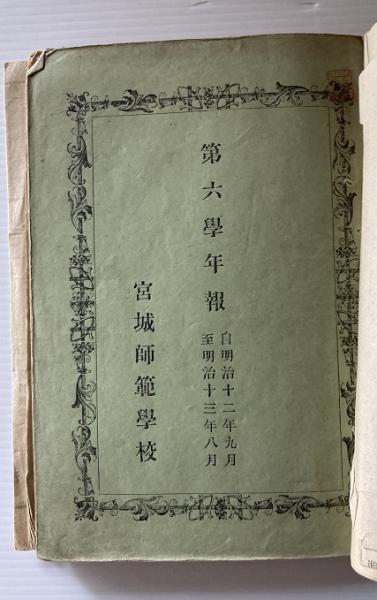 第六學年報
自明治十二年九月
至明治十三年八月
宮城師範學校